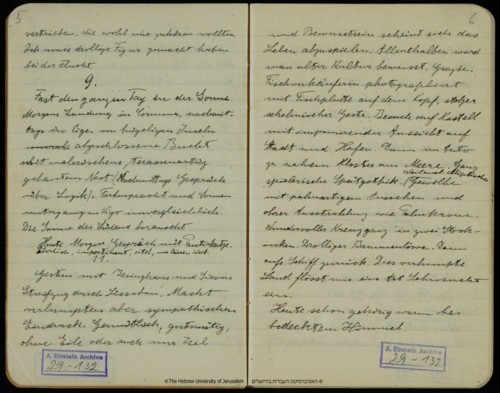 5
vertrieben, die wohl nie
Ich muss drollige Figur gemacht haben
bei der Flucht.
9.
Fast den ganzen Tag in der Sonne
Morgen Landung in Coruna, nachmit-
tags in Vigo, von hügeligen Inseln
abgeschlossene Bucht
mit malerischem, terassenartig
gebautem Ort. (Nachmittags Gespräche
über Logik). Farbenpracht und Sonnen
untergang in Vigo unvergleichlich
Die Sonne des Südens berauscht
Heute Morgen Gespräch mit
impertinent, eitel,
11.
Gestern mit Jesinghaus und
Streifzug durch Lissabon. Macht
verlumpten aber sympathischen
Eindruck. Gemütlich, gutmütig,
ohne Eile oder auch nur Ziel
A. Einstein Archive
29-132
6
und Bewusstsein scheint sich das
Leben abzuspielen. Allenthalben wird
man alter Kultur bewusst. Grazie.
Fischverkäuferin photographiert
mit Fischplatte auf dem Kopf, stolzer
schelmischer Geste. Besuch auf Kastell
mit imponierender Aussicht auf
Stadt und Hafen. Dann im Auto
zu nahem Kloster am Meere. Ganz
spielerische Spätgotik. (Gewölbe
mit palmartigen und
oberer Ausstrahlung wie
Wundervoller Kreuzgang in zwei Stock-
werken. Drolliger Brunnenlöwe. Dann
aufs Schiff zurück. Dies verlumpte
Land flösst mir eine Art Sehnsucht
ein.
Heute schon gehörig warm bei
bedecktem Himmel.
A. Einstein Archive
29-132
© The Hebrew University of Jerusalem © האוניברסיטה העברית בירושלים